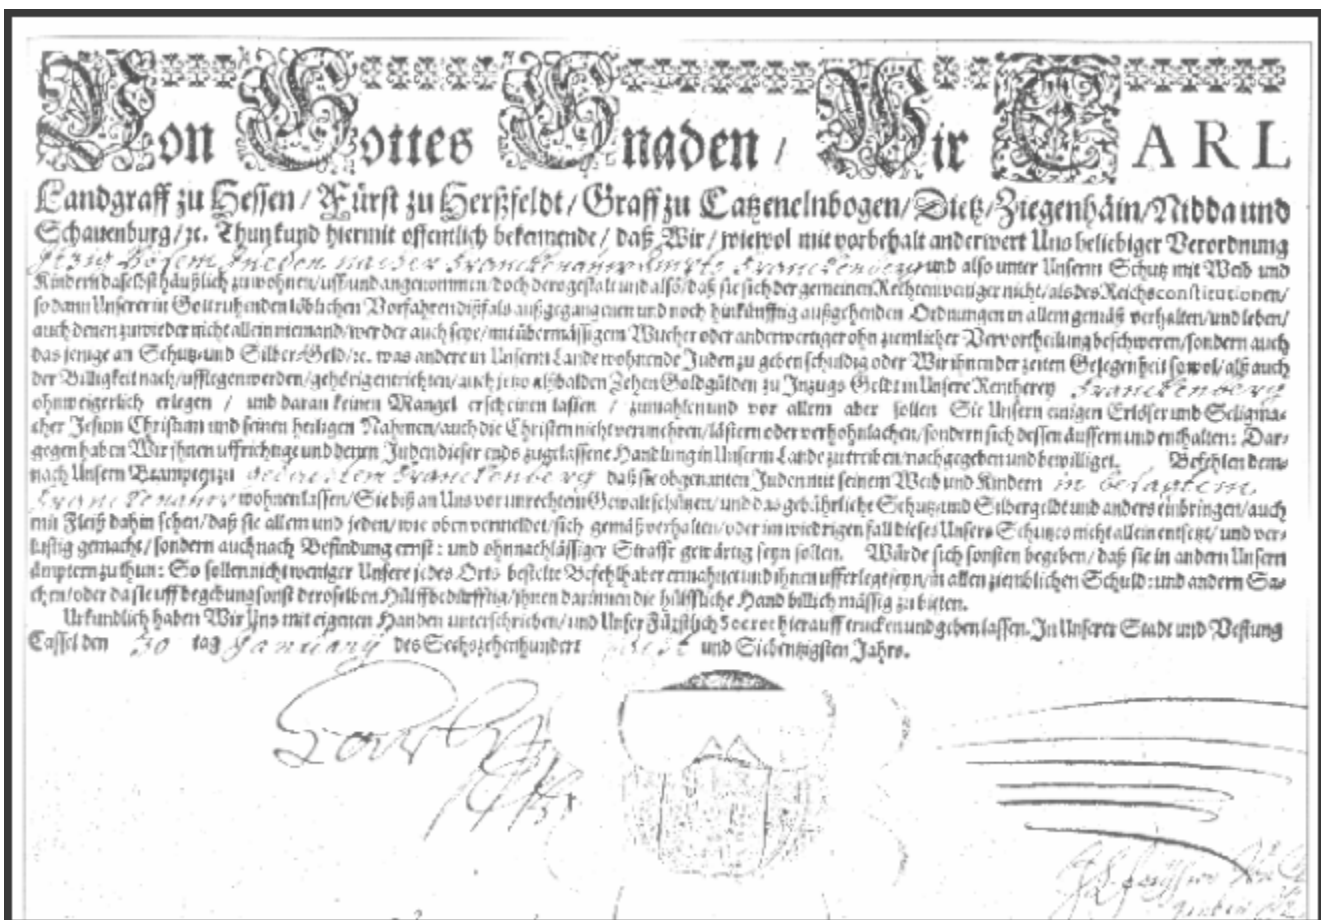 Von Gottes Gnaden / Wir CARL
Landgraff zu Hessen / Fürst zu Herßfeldt / Graff zu Catzenelnbogen / Dietz / Ziegenhäin / Nidda und
Schauenburg / ꝛc. Thun kund hiermit offentlich bekennende / daß Wir / wiewol mit vorbehalt anderwert Uns beliebiger Verordnung
Juden Franckenaw Ampts Franckenberg und also unter Unserm Schutz mit Weib und
Kindern daselbst häußlich zu wohnen / uff und angenommen / doch dero gestalt und also / daß sie sich der gemeinen Rechten weniger nicht / als des Reichs constitutionen /
so dann Unserer in Gott ruhenden löblichen Vorfahren dißfals außgegangenen und noch hinkünfftig außgehenden Ordnungen in allem gemäß verhalten / und leben /
auch denen zuwieder nicht allein niemand / wer der auch seye / mit übermässigem Wucher oder anderwertiger ohnziemlicher Vervortheilung beschweren / sondern auch
das jenige an Schutz-und Silber-Geld / ꝛc. was andere in Unserm Lande wohnende Juden zu geben schuldig oder Wir ihnen der zeiten Gelegenheit sowol / alß auch
der Billigkeit nach / ufflegen werden / gehörig entrichten / auch jetzo alßbalden Zehen Goldgülden zu Inzugs Geldt in Unsere Rentherey Franckenberg
ohnweigerlich erlegen / und daran keinen Mangel erscheinen lassen / zumahlen und vor allem aber sollen Sie Unsern einigen Erlöser und Seligma-
cher Jesum Christum und seinen heiligen Nahmen / auch die Christen nicht verunehren / lästern oder verhohnlachen / sondern sich dessen äussern und enthalten: Dar-
gegen haben Wir ihnen uffrichtige und denen Juden dieser ends zugelassene Handlung in Unserm Lande zu treiben / nachgegeben und bewilliget. Befehlen dem-
nach Unsern Beampten zu Franckenberg daß sie obgenanten Juden mit seinem Weib und Kindern in besagtem
Franckenaw wohnen lassen / Sie biß an Uns vor unrechtem Gewalt schützen / und das gebührliche Schutz und Silbergeldt und anders einbringen / auch
mit Fleiß dahin sehen / daß sie allem und jeden / wie oben vermeldet / sich gemäß verhalten / oder im wiedrigen fall dieses Unsers Schutzes nicht allein entsetzt / und ver-
lustig gemacht / sondern auch nach Befindung ernst: und ohnnachlässiger Straffe gewärtig seyn sollen. Würde sich sonsten begeben / daß sie in andern Unsern
ämptern zu thun: So sollen nicht weniger Unsere jedes Orts bestelte Befehlhaber ermahnet und ihnen ufferlegt seyn / in allen ziemblichen Schuld: und andern Sa-
chen / oder da sie uff begebung sonst deroselben Hülff bedürfftig / ihnen darinnen die hülffliche Hand billich mässig zu bieten.
Urkundlich haben Wir Uns mit eigenen Handen unterschrieben / und Unser Fürstlich Secret hierauff trucken und geben lassen. In Unserer Stadt und Vestung
Cassel den 30 tag January des Sechszehenhundert und Siebentzigsten Jahrs.
Carl